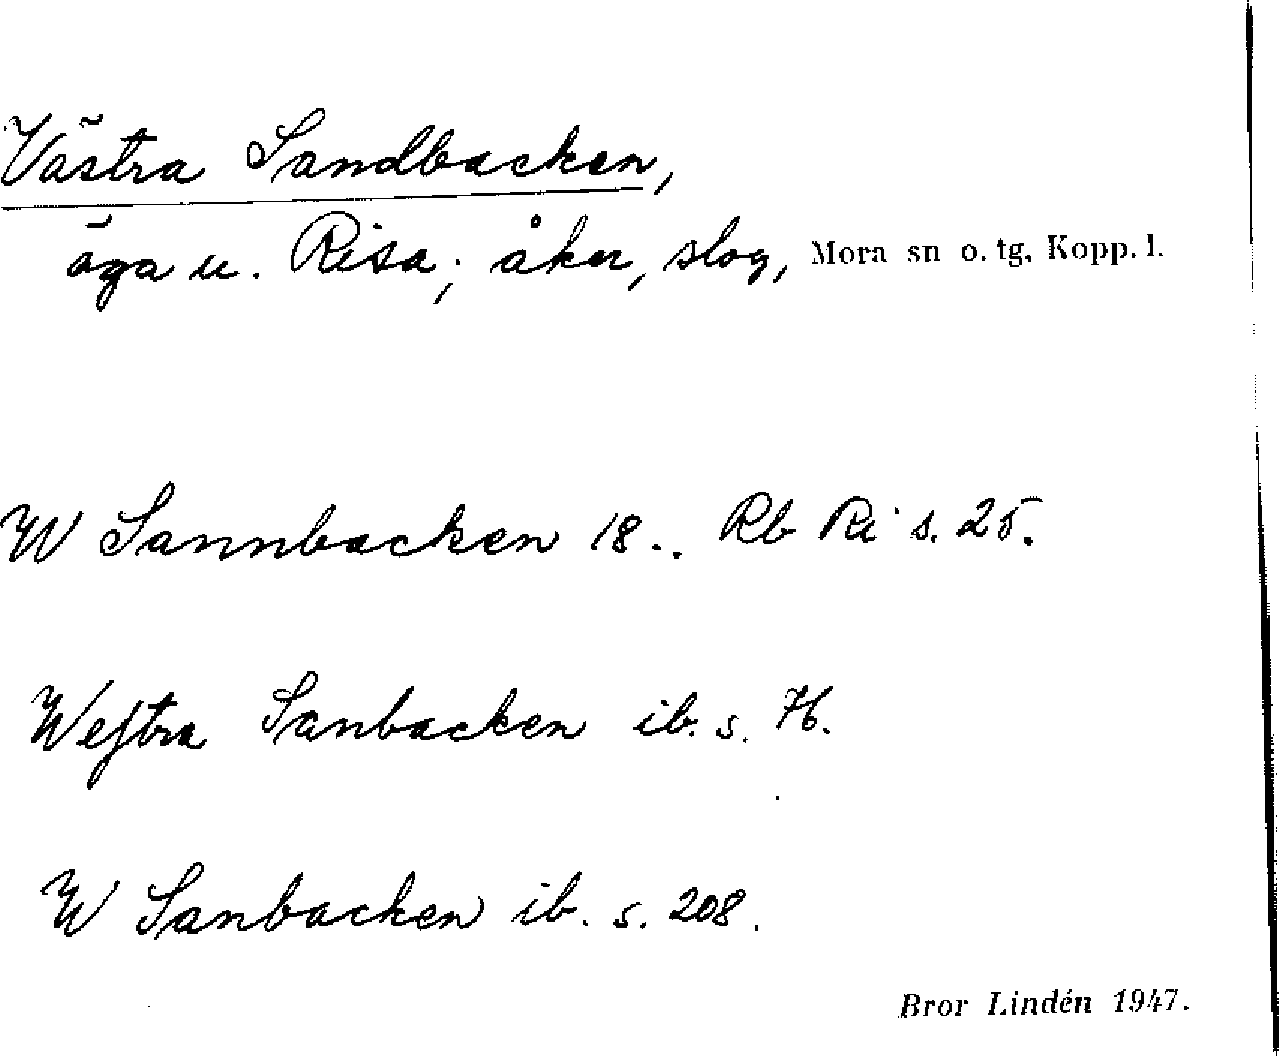 Västra Sandbacken,
äga u. Risa; åker, slog, Mora sn o. tg. Kopp. l.
W Sannbacken 18.. Rb Ri s. 25.
Westra Sanbacken ib. s. 76.
W Sanbacken ib. s. 208.
Bror Lindén 1947.